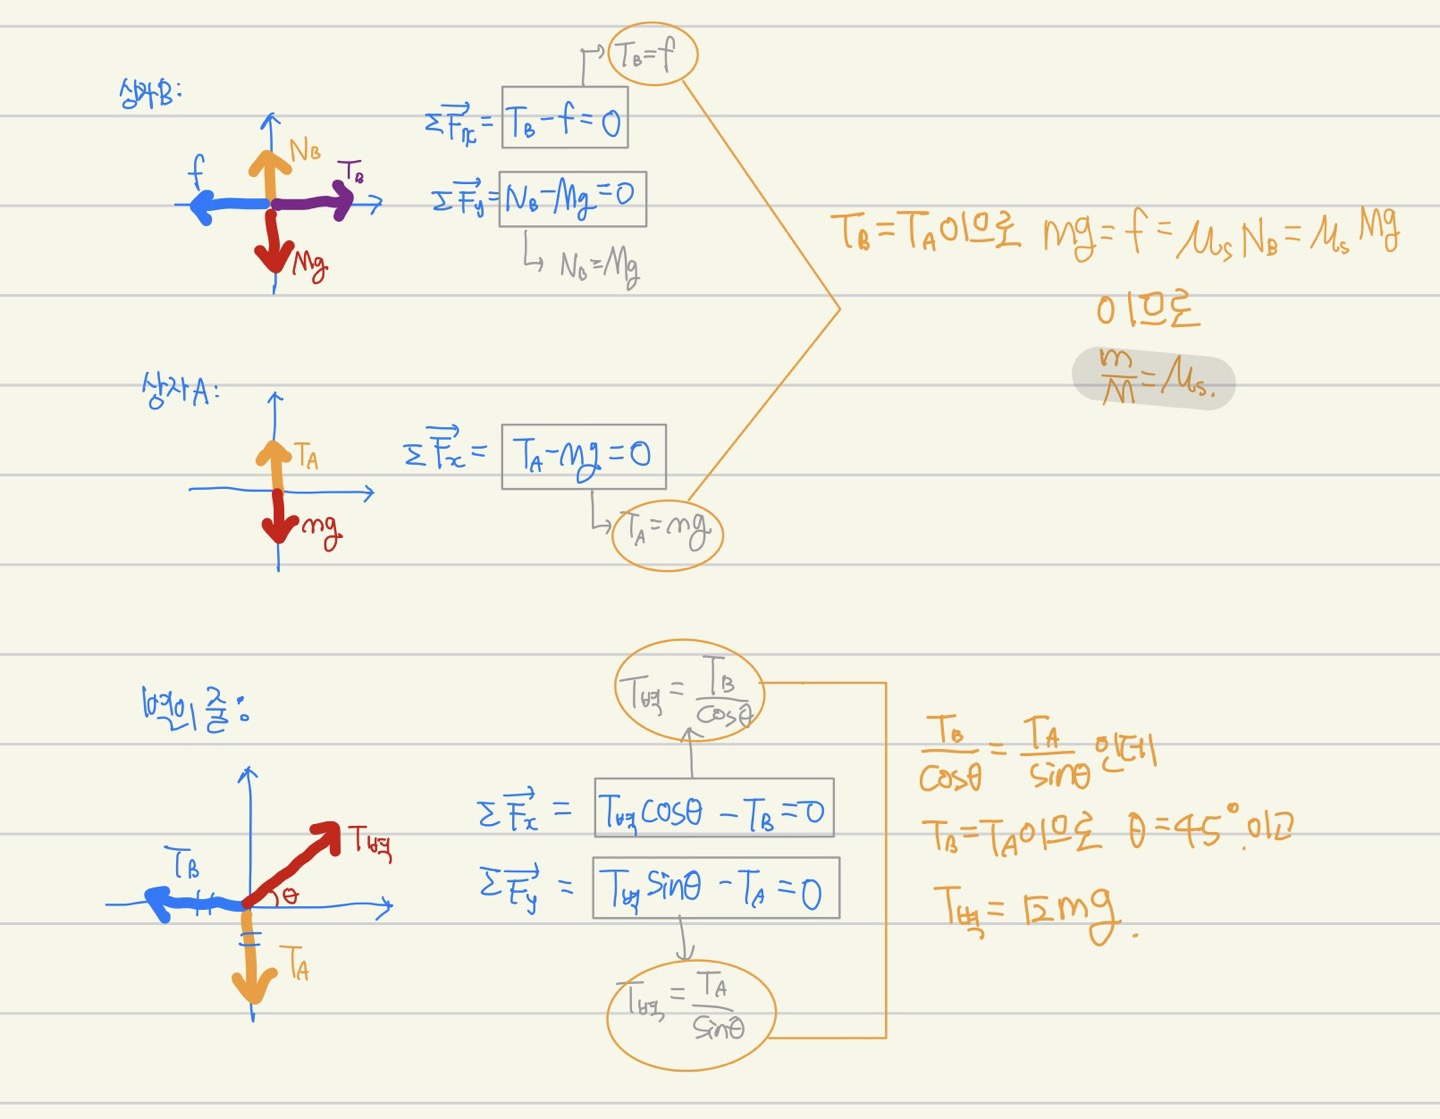 상자B:
N_B
f
T_B
Mg
ΣF⃗x = T_B - f = 0
T_B = f
ΣF⃗y = N_B - Mg = 0
N_B = Mg
T_B = T_A이므로 mg = f = μ_s N_B = μ_s Mg
이므로
m/M = μ_s.
상자A:
T_A
mg
ΣF⃗x = T_A - mg = 0
T_A = mg
벽의 줄:
T_B
T벽
θ
T_A
T벽 = T_B/cosθ
ΣF⃗x = T벽 cosθ - T_B = 0
ΣF⃗y = T벽 sinθ - T_A = 0
T벽 = T_A/sinθ
T_B/cosθ = T_A/sinθ 인데
T_B = T_A이므로 θ = 45°이고
T벽 = √2 mg.